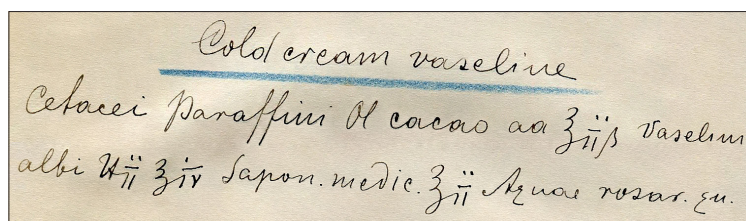 Cold cream vaseline
Cetacei Paraffini Ol cacao aa ℥iiβ Vaselini
albi ℔ii ℥iv Sapon. medic. ℥ii Aquae rosar. qu.